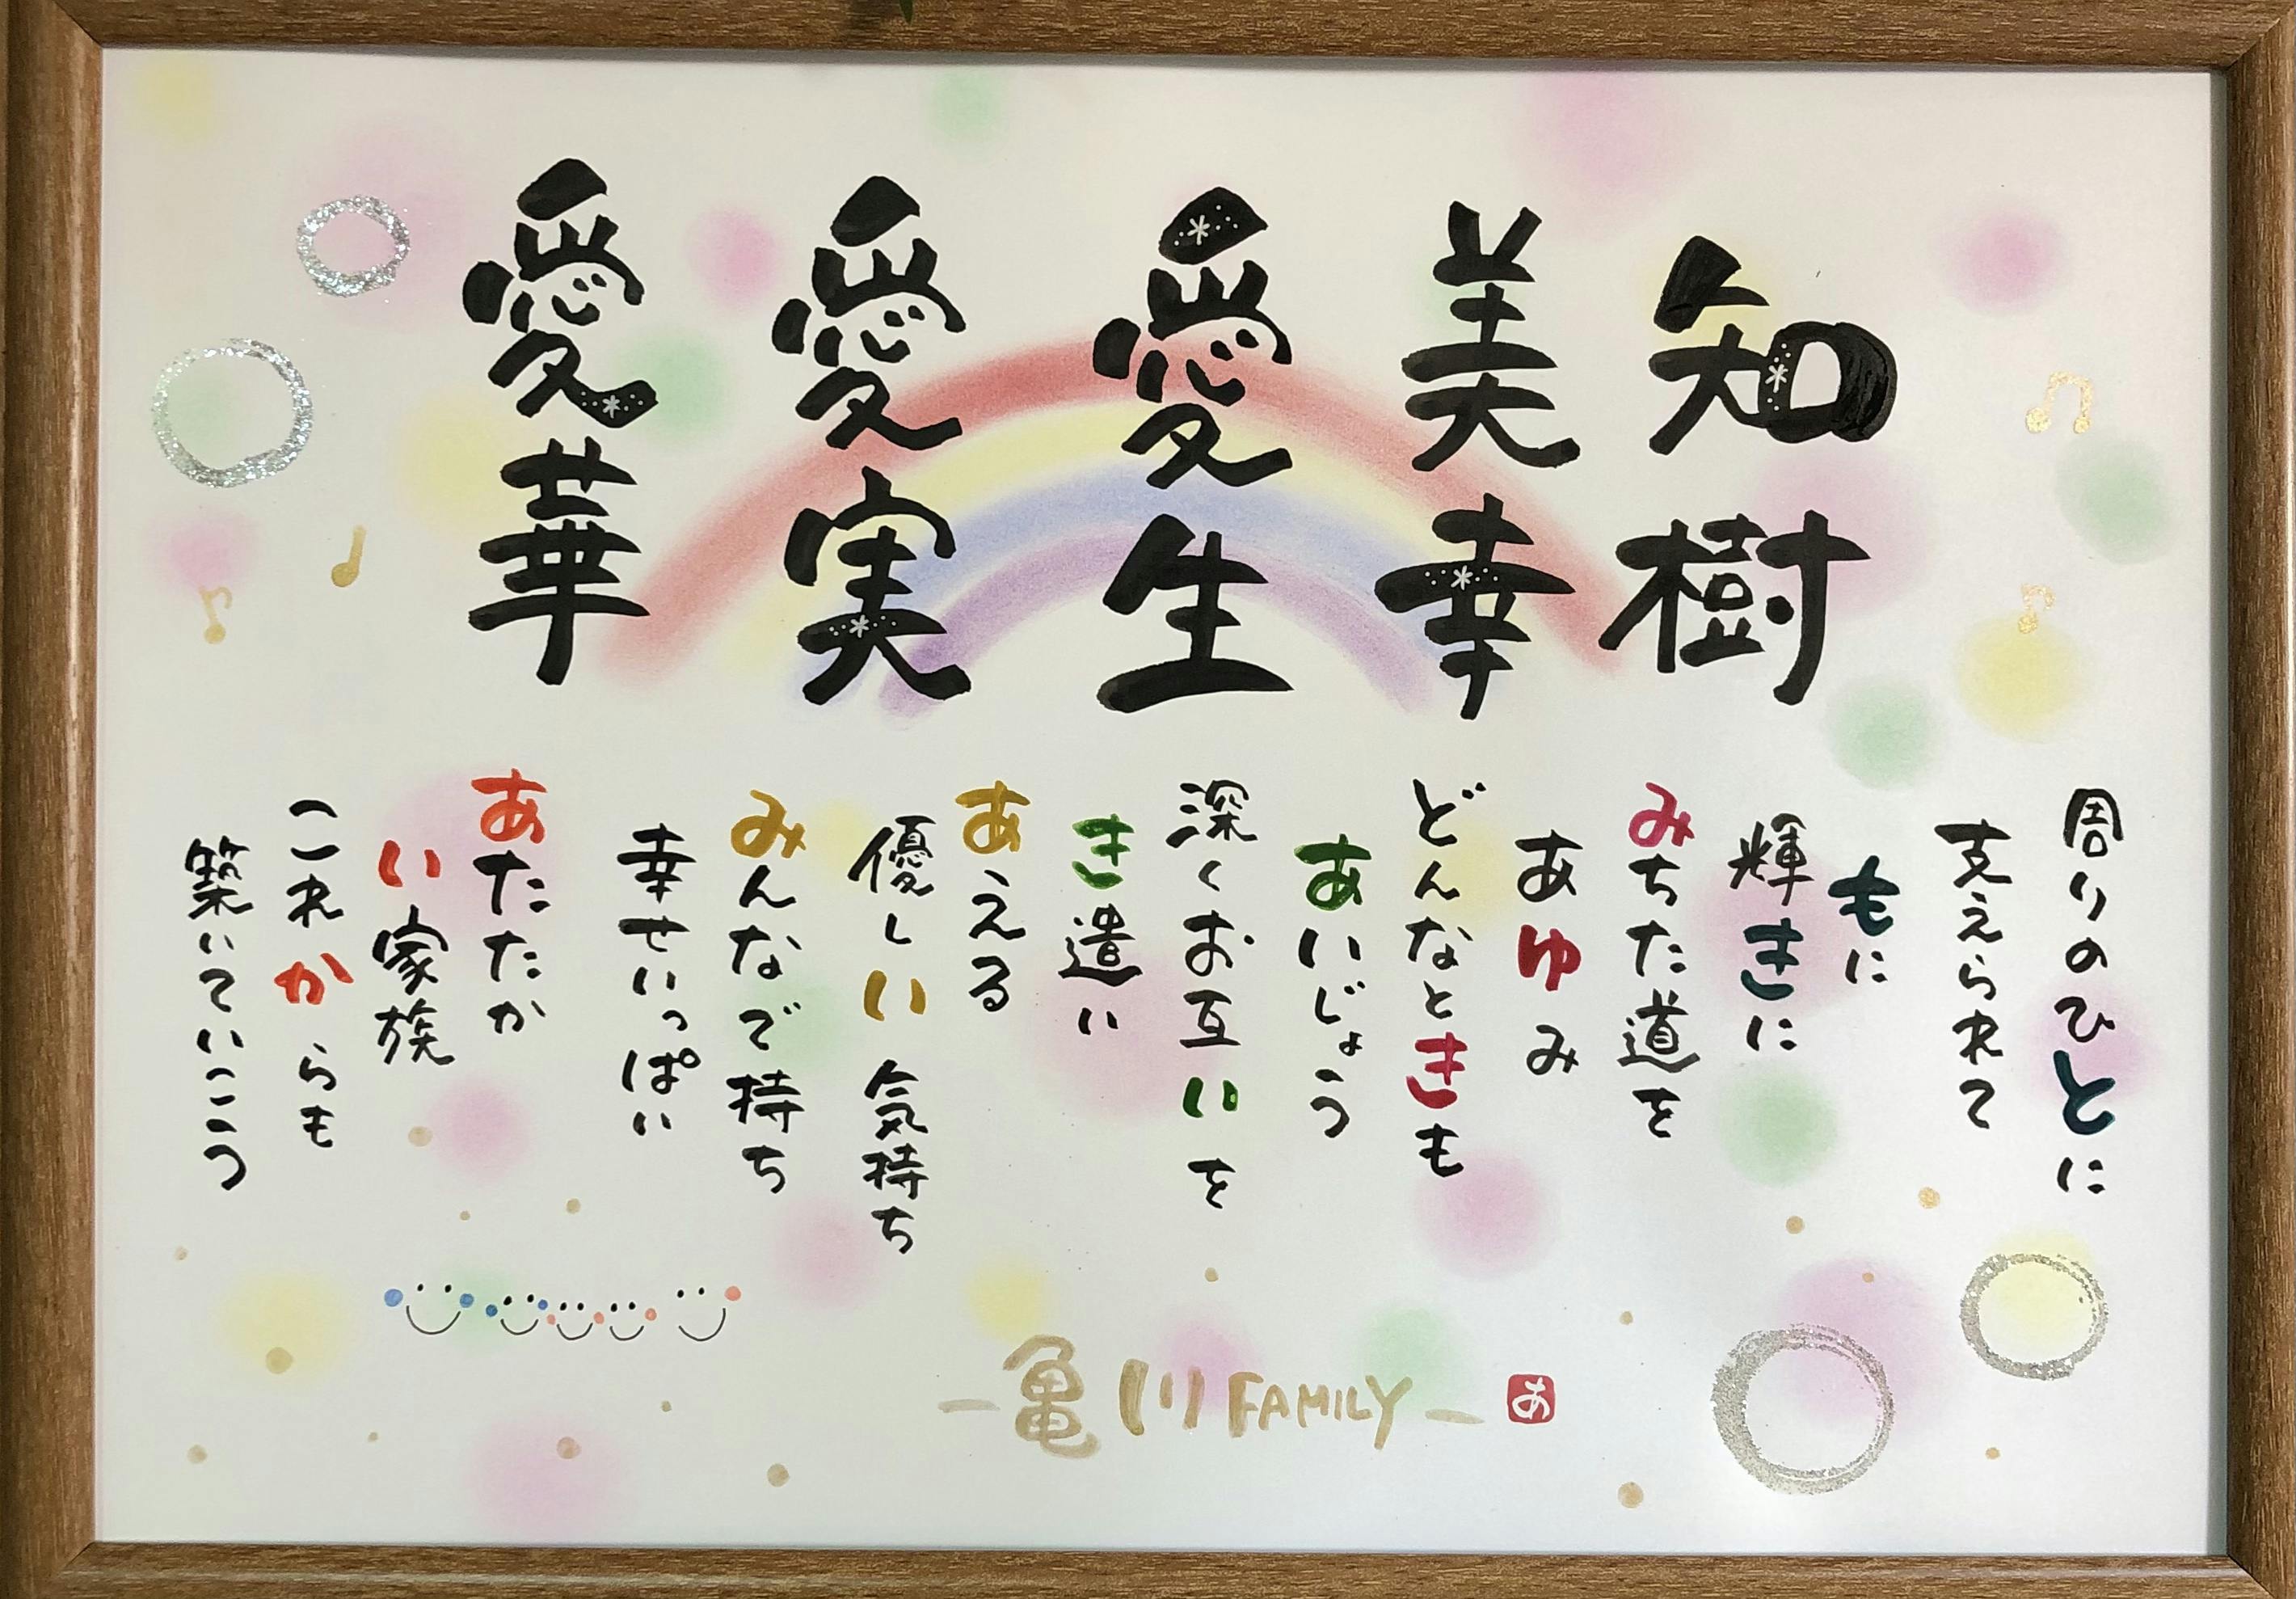 知樹
美幸
愛生
愛実
愛華
周りのひとに
支えられて
もに
輝きに
みちた道を
あゆみ
どんなときも
あいじょう
深くお互いを
き遣い
あえる
優しい気持ち
みんなで持ち
幸せいっぱい
あたたか
い家族
これからも
築いていこう
－亀川FAMILY－
あ